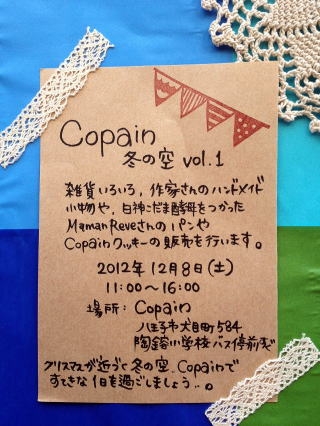 Copain
冬の空 vol.1
雑貨いろいろ，作家さんのハンドメイド
小物や，白神こだま酵母をつかった
Maman Reveさんのパンや
Copainクッキーの販売を行います。
2012年12月8日(土)
11:00〜16:00
場所：Copain
八王子市犬目町584
陶鎔小学校バス停前すぐ
クリスマスが近づく冬の空、Copainで
すてきな1日を過ごしましょう..。